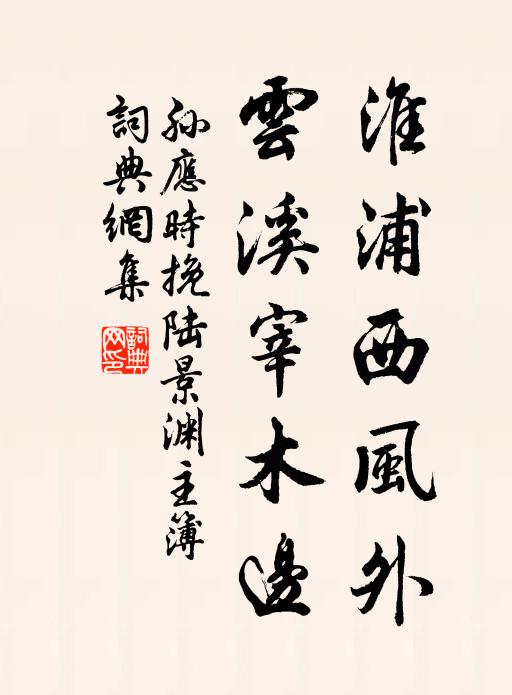 淮浦西風外
雲溪宰木邊
孙應時挽陆景渊主簿
詞典網集
詞典
网印